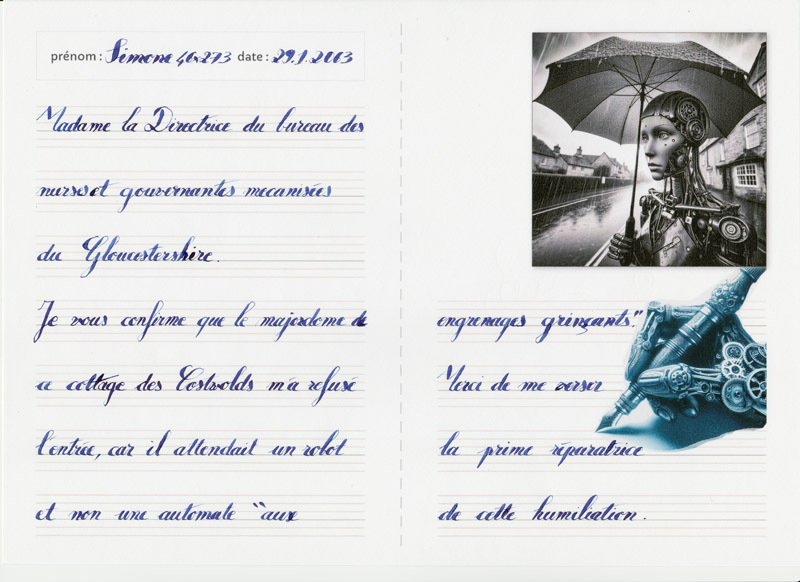 prénom : Simone 46-273 date : 29.1.2003
Madame la Directrice du bureau des
nurses et gouvernantes mecanisées
du Gloucestershire.
Je vous confirme que le majordome de
ce cottage des Costwolds m'a refusé
l'entrée, car il attendait un robot
et non une automate "aux
engrenages grinçants."
Merci de me verser
la prime réparatrice
de cette humiliation.